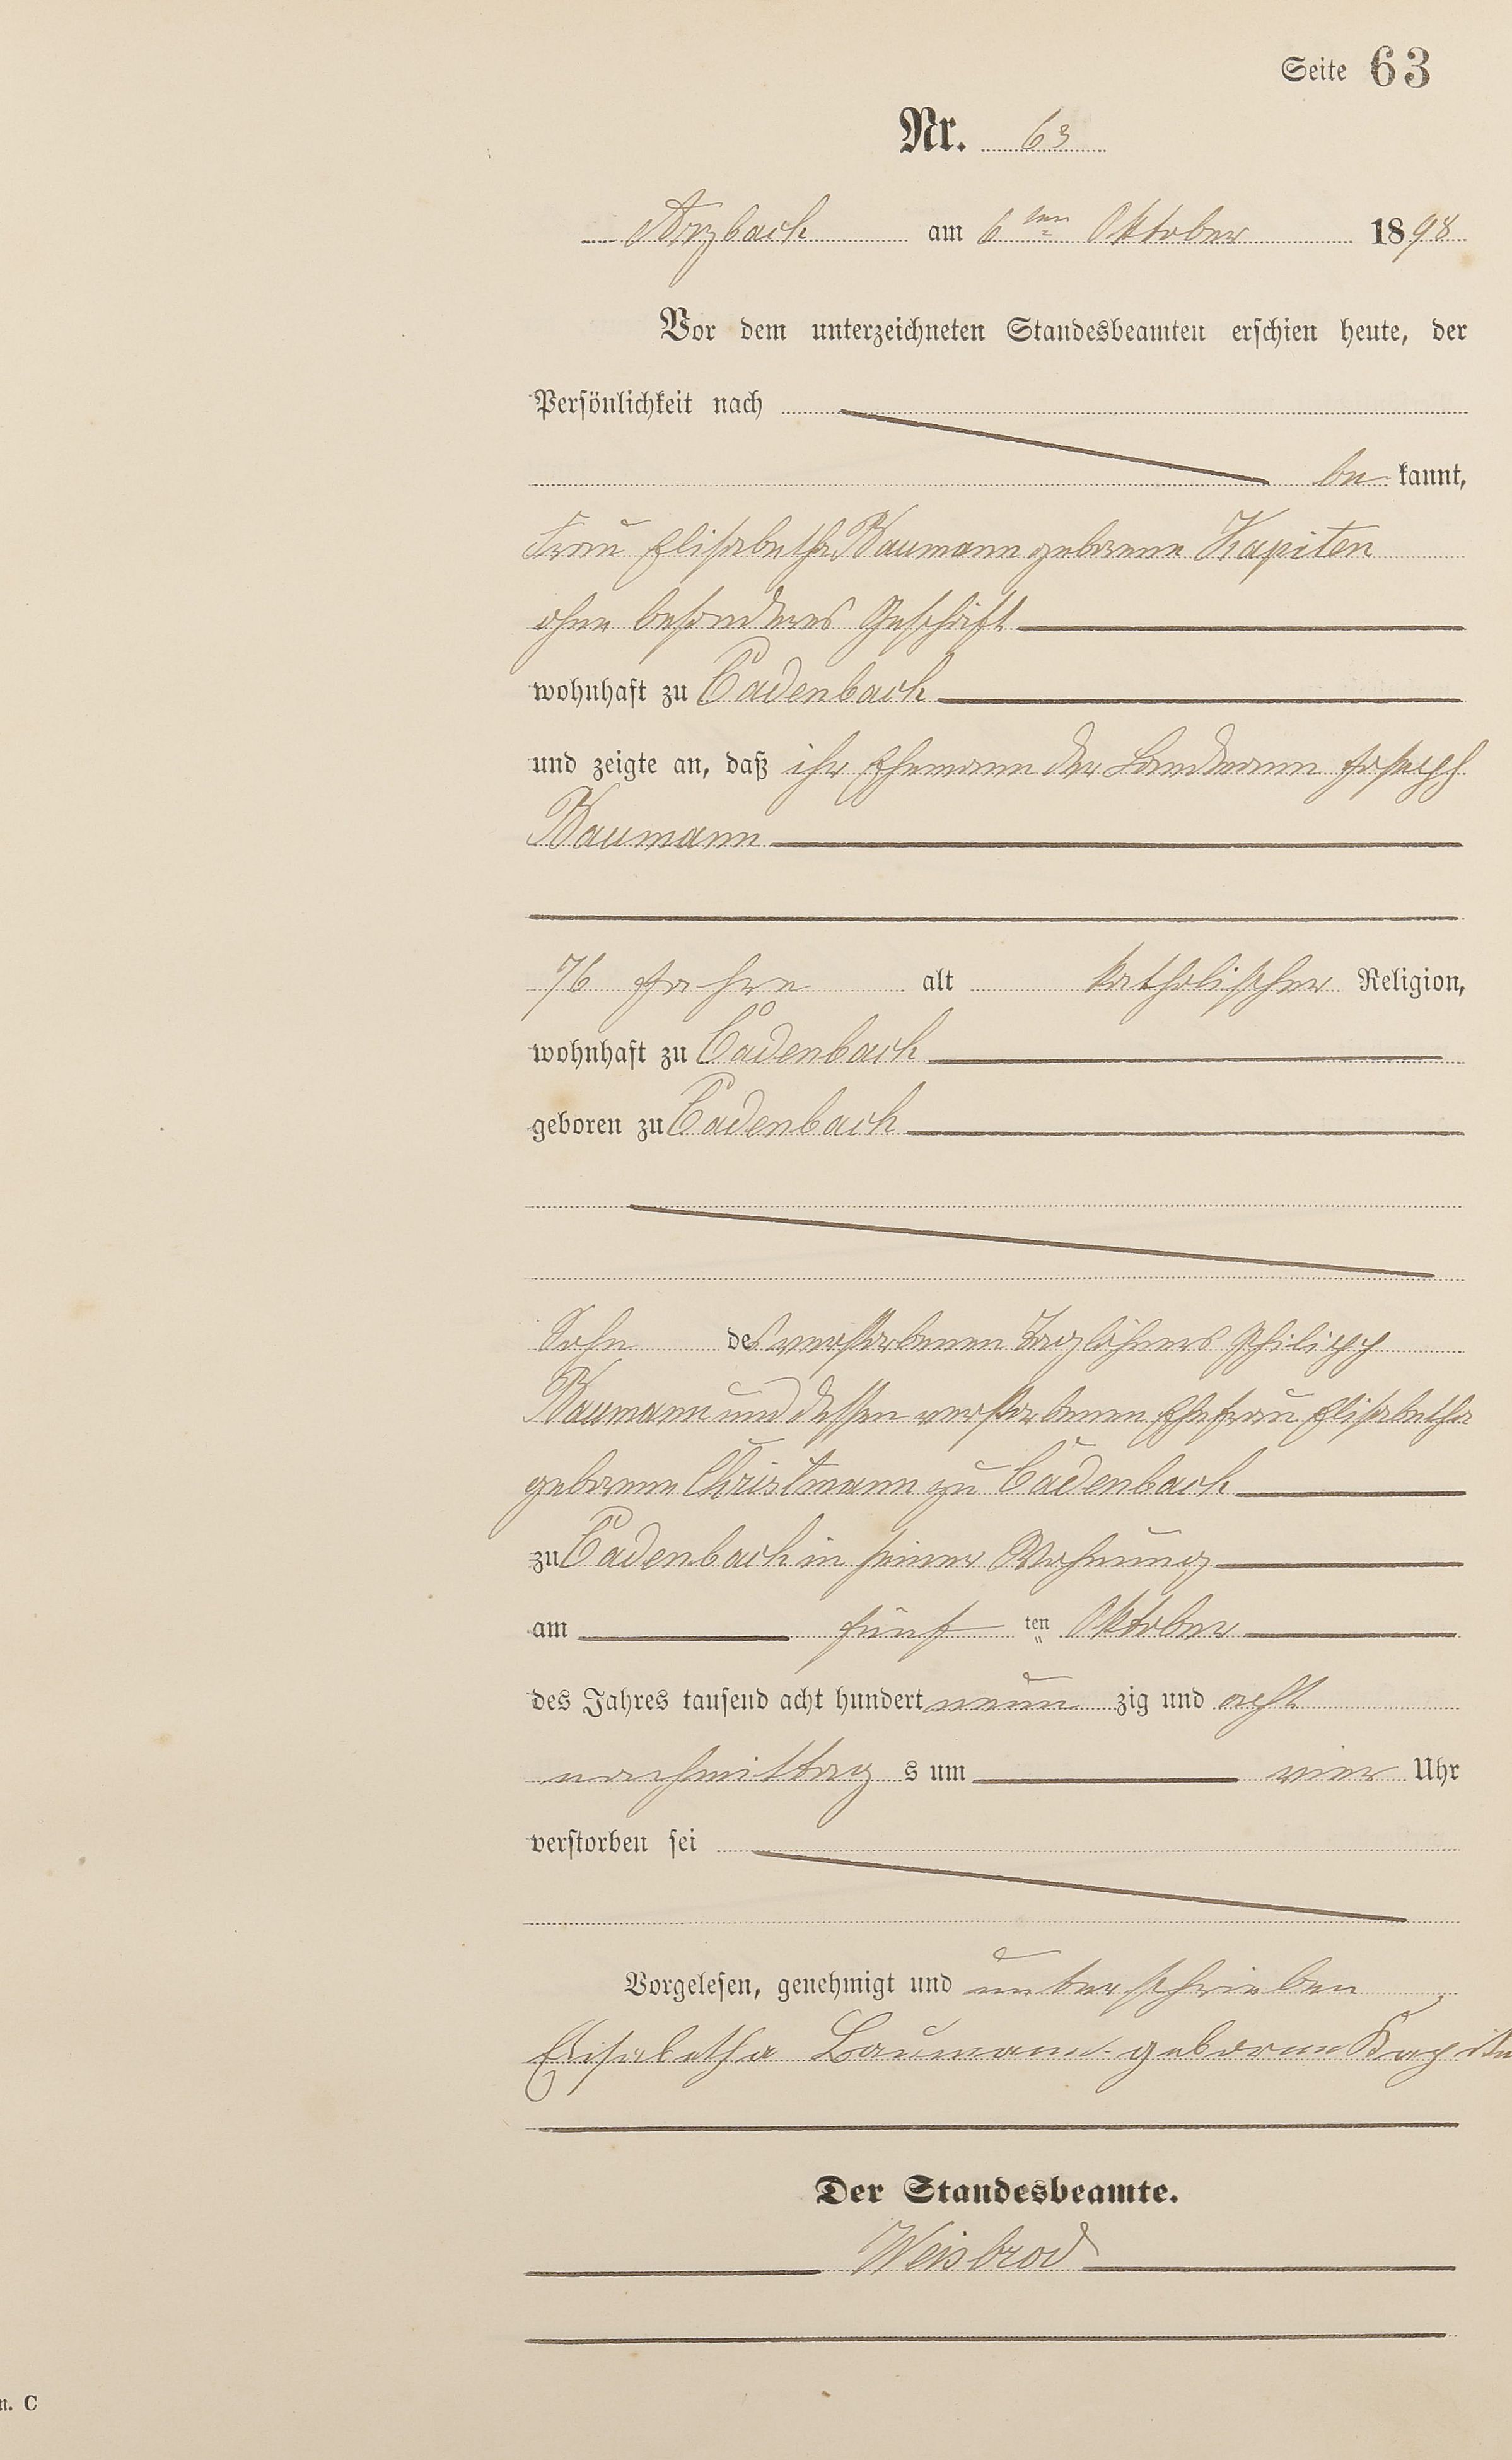 Seite 63
Nr. 63
Arzbach am 6ten Oktober 1898
Vor dem unterzeichneten Standesbeamten erschien heute, der
Persönlichkeit nach
be kannt,
Frau Elisabetha Baumann geborene Kapiten
ohne besonderes Geschäft
wohnhaft zu Cadenbach
und zeigte an, daß ihr Ehemann der Landmann Joseph
Baumann
76 Jahre alt katholischer Religion,
wohnhaft zu Cadenbach
geboren zu Cadenbach
Sohn des verstorbenen Taglöhners Philipp
Baumann und dessen verstorbenen Ehefrau Elisabetha
geborene Christmann zu Cadenbach
zu Cadenbach in seiner Wohnung
am fünf ten Oktober
des Jahres tausend acht hundert neun zig und acht
nachmittag s um vier Uhr
verstorben sei
Vorgelesen, genehmigt und unterschrieben
Elisabetha Baumann geborene Kapiten
Der Standesbeamte.
Weisbrod
n. C